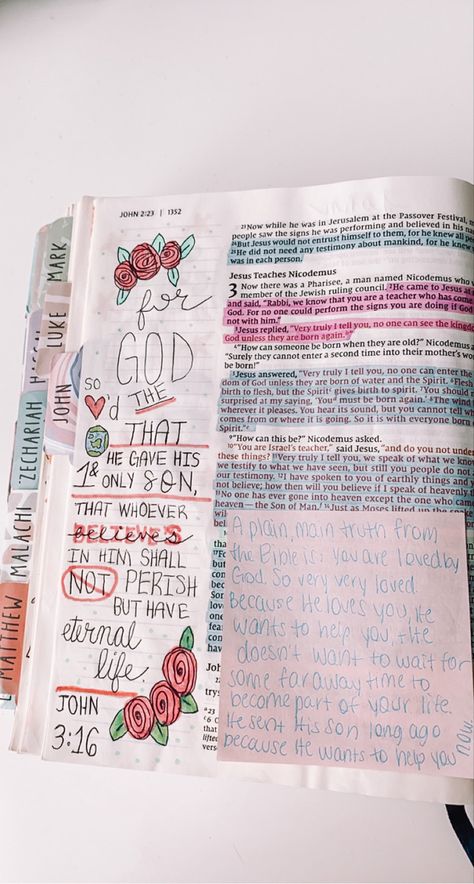 MARK
LUKE
JOHN
ZECHARIAH
MALACHI
MATTHEW
JOHN 2:23 | 1352
for
GOD
so
'd THE
THAT
HE GAVE HIS
1 & ONLY SON,
THAT WHOEVER
BELIEVE'S
believes
IN HIM SHALL
NOT PERISH
BUT HAVE
eternal
life.
JOHN
3:16
23Now while he was in Jerusalem at the Passover Festival,
people saw the signs he was performing and believed in his
24But Jesus would not entrust himself to them, for he knew all
25He did not need any testimony about mankind, for he knew
was in each person.
Jesus Teaches Nicodemus
3 Now there was a Pharisee, a man named Nicodemus who
member of the Jewish ruling council. 2He came to Jesus
and said, "Rabbi, we know that you are a teacher who has come
God. For no one could perform the signs you are doing if God
not with him."
3Jesus replied, "Very truly I tell you, no one can see the
God unless they are born again."
4"How can someone be born when they are old?" Nicodemus
"Surely they cannot enter a second time into their mother's
be born!"
5Jesus answered, "Very truly I tell you, no one can enter the
dom of God unless they are born of water and the Spirit. 6Flesh
birth to flesh, but the Spirit gives birth to spirit. 7You should
surprised at my saying, 'You must be born again.' 8The wind
wherever it pleases. You hear its sound, but you cannot tell
comes from or where it is going. So it is with everyone born
Spirit."
9"How can this be?" Nicodemus asked.
10"You are Israel's teacher," said Jesus, "and do you not under
these things? 11Very truly I tell you, we speak of what we
we testify to what we have seen, but still you people do not
our testimony. 12I have spoken to you of earthly things and
not believe; how then will you believe if I speak of heavenly
13No one has ever gone into heaven except the one who came
heaven—the Son of Man. 14Just as Moses lifted up the
A plain, main truth from
the Bible is: you are loved by
God. So very very loved.
Because He loves you, He
wants to help you, & He
doesn't want to wait for
some far away time to
become part of your life.
He sent His son long ago
because He wants to help you now